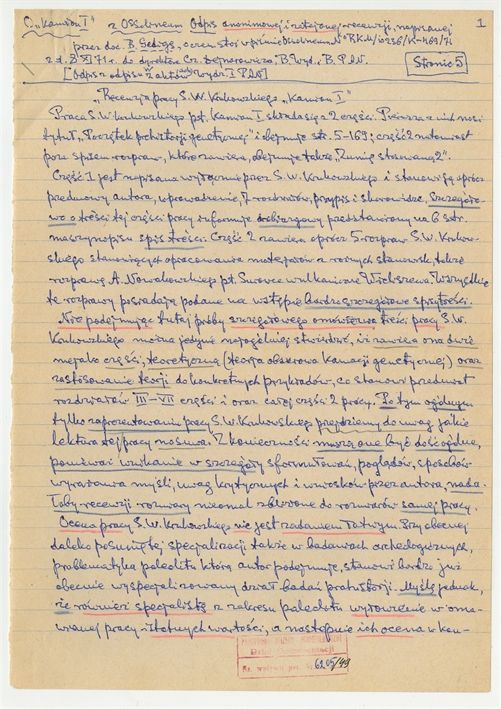 O „Kamion I" z Ossolineum Odpis anonimowej i zatajonej recenzji, napisanej 1
przez doc. B.
z d. 8 XI 71 r. do dyrektora Cz. B. Wyd. B. PAN. Stronic 5
[Odpis z odpisu z aktów Wydz. I PAN]
„Recenzja pracy S. W. Krukowskiego „Kamion I"
Praca S. W. Krukowskiego pt. Kamion I składa się z 2 części. Pierwsza z nich nosi
tytuł „Początek prehistorji genetycznej" i obejmuje str. 5-169; część 2 natomiast
poza spisem rozpraw, które zawiera, obejmuje także
Część 1 jest napisana wyłącznie przez S. W. Krukowskiego i stanowią ją oprócz
przedmowy autora, wprowadzenie, 7 rozdziałów, przypisy i skorowidze. Szczegóło-
wo o treści tej części pracy informuje dobrze przedstawiony na 6 str.
maszynopisu spis treści. Część 2 zawiera oprócz 5 rozpraw S. W. Kruko-
wskiego stanowiących opracowania materjałów z różnych stanowisk, także
rozprawę A. Nowakowskiego pt. Surowce wulkaniczne Wichszewa. Wszystkie
te rozprawy posiadają podane na wstępie bardzo szczegółowe spisy treści.
Nie podejmując tutaj próby szczegółowego omówienia treści pracy S. W.
Krukowskiego można jedynie najogólniej stwierdzić, iż zawiera ona dużą
część teoretyczną (teorja obszerowa Kamacji genetycznej) oraz
zastosowanie teorji do konkretnych przykładów, co stanowi przedmiot
rozdziałów III-VII części 1 oraz całej części 2 pracy. Po tym ogólnym
tylko zaprezentowaniu pracy S. W. Krukowskiego przejdziemy do uwag, jakie
lektura tej pracy nasuwa. Z konieczności muszą one być dość ogólne,
ponieważ wnikanie w szczegóły sformułowań, poglądów, sposobów
wyrażania myśli, uwag krytycznych i wniosków przez autora, nada-
łoby recenzji rozmiary nieomal zbliżone do rozmiarów samej pracy.
Ocena pracy S. W. Krukowskiego nie jest zadaniem łatwym. Przy obecnej
daleko posuniętej specjalizacji także w badaniach archeologicznych,
problematyka paleolitu którą autor podejmuje, stanowi bardzo już
obecnie wyspecjalizowany dział badań prahistorji. Myślę jednak,
że również specjaliście z zakresu paleolitu wyłowienie w oma-
wianej pracy istotnych wartości, a następnie ich ocena w kon-
PAŃSTWOWE MUZEUM ARCHEOLOGICZNE
Dział Dokumentacji
Nr.